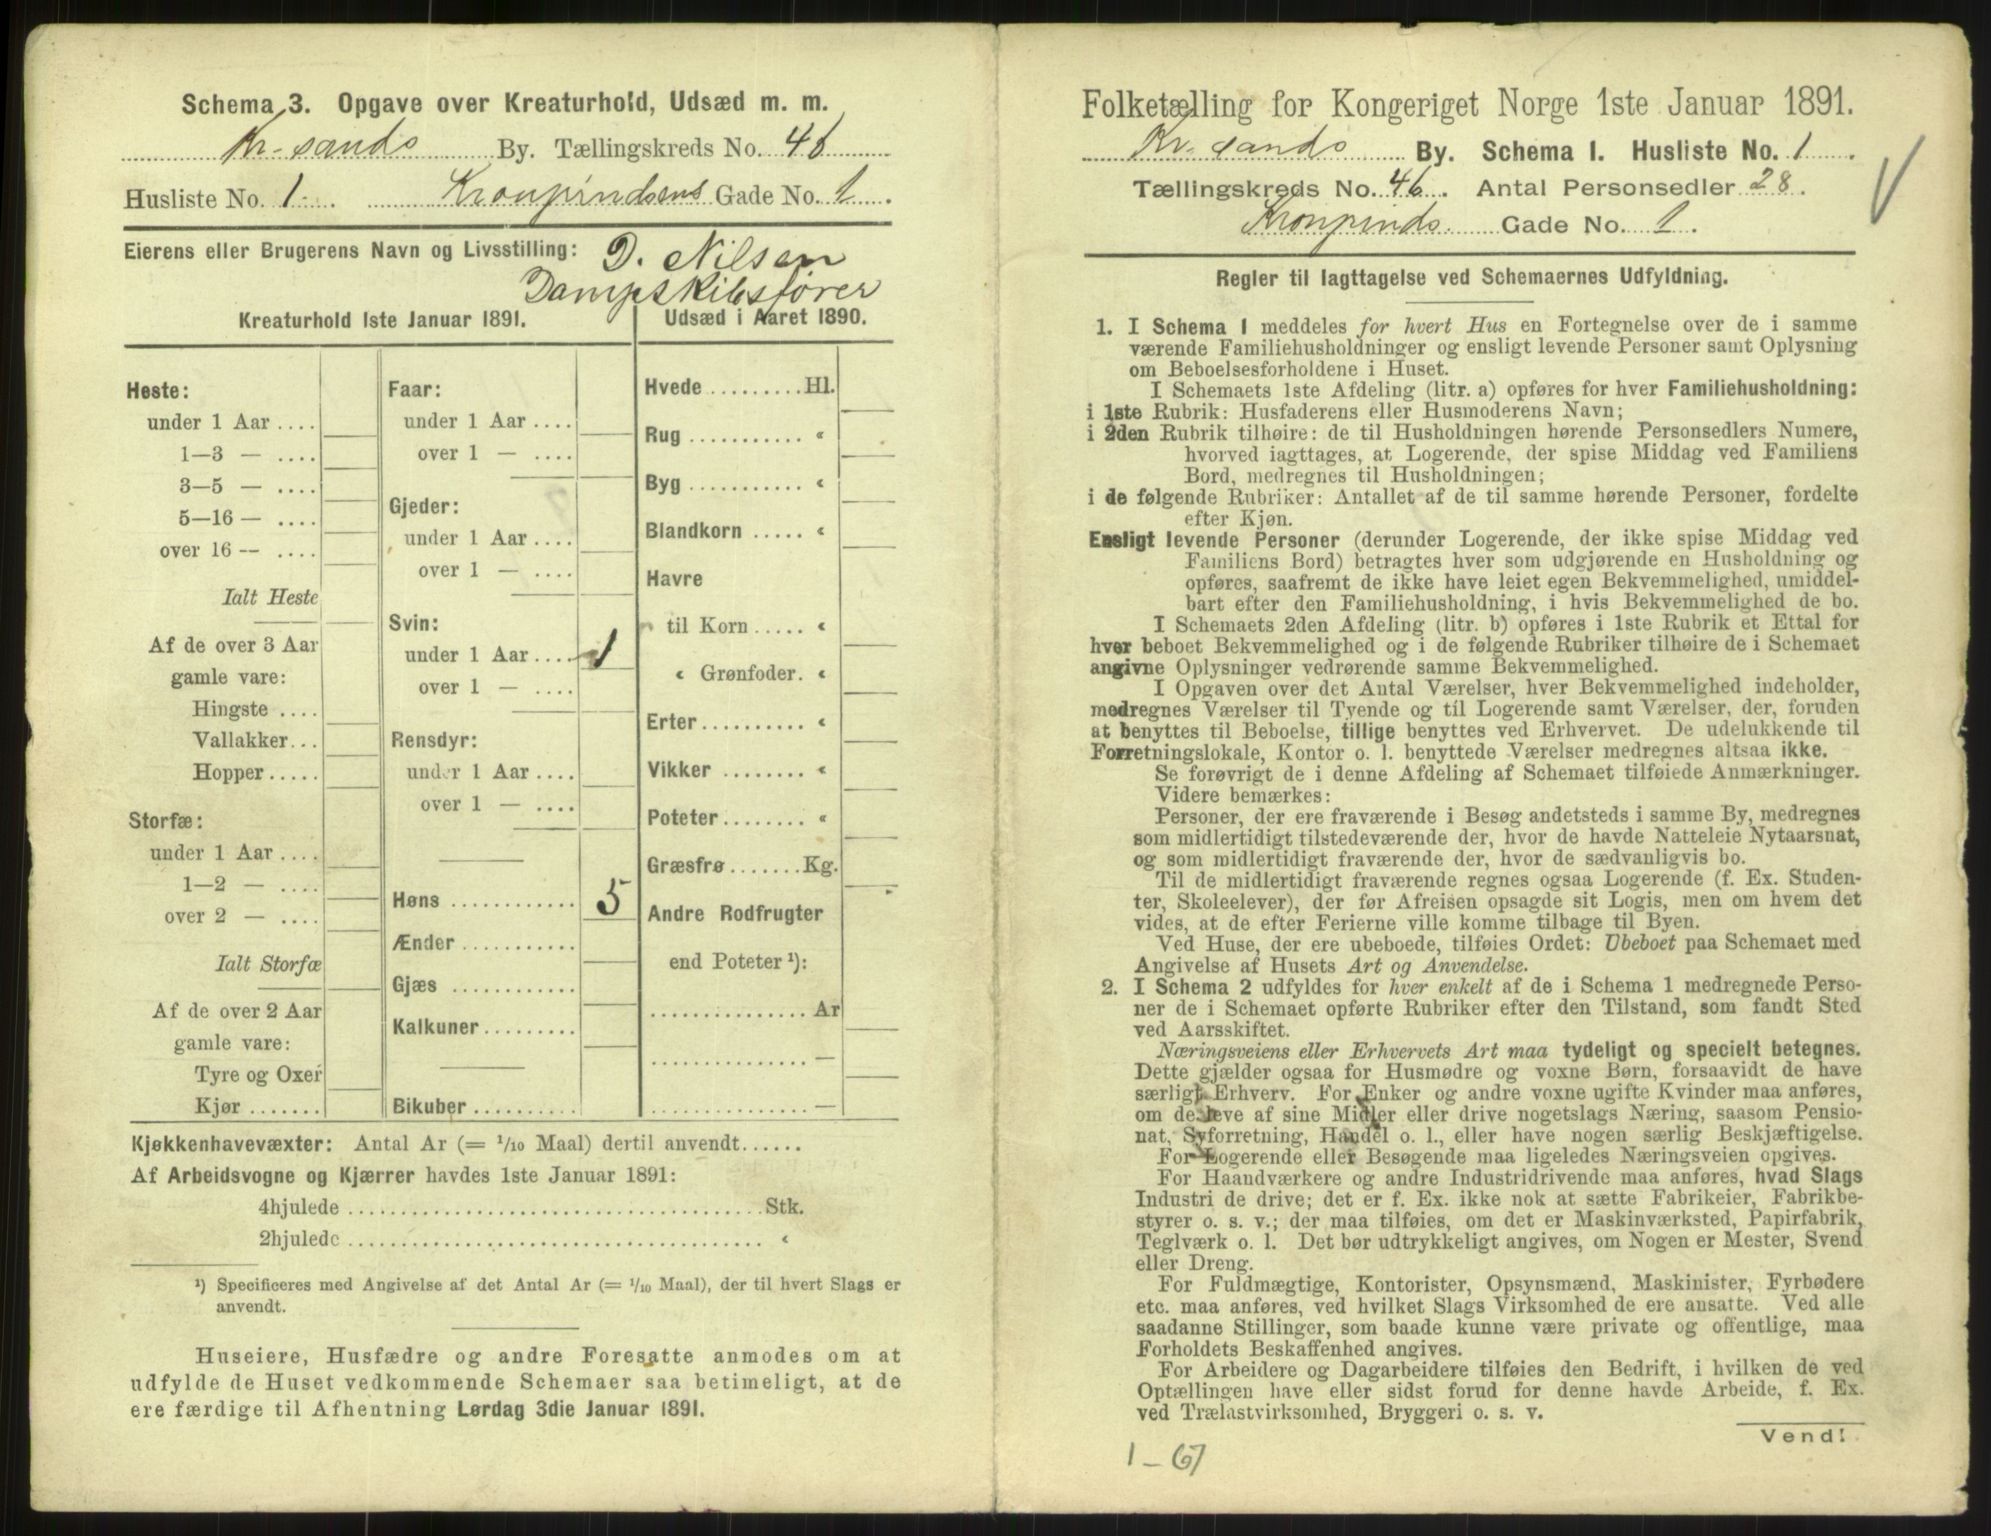 Schema 3. Opgave over Kreaturhold, Udsæd m. m.
Kr-sands By. Tællingskreds No. 46
Husliste No. 1. Kronpindsens Gade No. 1.
Eierens eller Brugerens Navn og Livsstilling: D. Nilsen
Dampskibsfører
Kreaturhold 1ste Januar 1891.
Heste:
under 1 Aar ....
1—3 — ....
3—5 — ....
5—16 — ....
over 16 — ....
Ialt Heste
Af de over 3 Aar
gamle vare:
Hingste ....
Vallakker...
Hopper.....
Storfæ:
under 1 Aar ....
1—2 — ....
over 2 — ....
Ialt Storfæ
Af de over 2 Aar
gamle vare:
Tyre og Oxer
Kjør .......
Faar:
under 1 Aar ....
over 1 — ....
Gjeder:
under 1 Aar ....
over 1 — ....
Svin:
under 1 Aar .... 1
over 1 — ....
Rensdyr:
under 1 Aar ....
over 1 — ....
Høns ............ 5
Ænder ...........
Gjæs ............
Kalkuner.........
Bikuber ..........
Udsæd i Aaret 1890.
Hvede .........Hl.
Rug ........... «
Byg ........... «
Blandkorn ..... «
Havre
til Korn ..... «
« Grønfoder. «
Erter.......... «
Vikker ........ «
Poteter ........ «
Græsfrø .......Kg.
Andre Rodfrugter
end Poteter ¹):
...............Ar
...............—
...............—
Kjøkkenhavevæxter: Antal Ar (= 1/10 Maal) dertil anvendt......
Af Arbeidsvogne og Kjærrer havdes 1ste Januar 1891:
4hjulede ........................................Stk.
2hjulede ........................................ «
¹) Specificeres med Angivelse af det Antal Ar (= 1/10 Maal), der til hvert Slags er
anvendt.
Huseiere, Husfædre og andre Foresatte anmodes om at
udfylde de Huset vedkommende Schemaer saa betimeligt, at de
ere færdige til Afhentning Lørdag 3die Januar 1891.
Folketælling for Kongeriget Norge 1ste Januar 1891.
Kr. sands By. Schema 1. Husliste No. 1
Tællingskreds No. 46. Antal Personsedler 28.
Kronpinds. Gade No. 1.
Regler til Iagttagelse ved Schemaernes Udfyldning.
1. I Schema 1 meddeles for hvert Hus en Fortegnelse over de i samme
værende Familiehusholdninger og ensligt levende Personer samt Oplysning
om Beboelsesforholdene i Huset.
I Schemaets 1ste Afdeling (litr. a) opføres for hver Familiehusholdning:
i 1ste Rubrik: Husfaderens eller Husmoderens Navn;
i 2den Rubrik tilhøire: de til Husholdningen hørende Personsedlers Numere,
hvorved iagttages, at Logerende, der spise Middag ved Familiens
Bord, medregnes til Husholdningen;
i de følgende Rubriker: Antallet af de til samme hørende Personer, fordelte
efter Kjøn.
Ensligt levende Personer (derunder Logerende, der ikke spise Middag ved
Familiens Bord) betragtes hver som udgjørende en Husholdning og
opføres, saafremt de ikke have leiet egen Bekvemmelighed, umiddel-
bart efter den Familiehusholdning, i hvis Bekvemmelighed de bo.
I Schemaets 2den Afdeling (litr. b) opføres i 1ste Rubrik et Ettal for
hver beboet Bekvemmelighed og i de følgende Rubriker tilhøire de i Schemaet
angivne Oplysninger vedrørende samme Bekvemmelighed.
I Opgaven over det Antal Værelser, hver Bekvemmelighed indeholder,
medregnes Værelser til Tyende og til Logerende samt Værelser, der, foruden
at benyttes til Beboelse, tillige benyttes ved Erhvervet. De udelukkende til
Forretningslokale, Kontor o. l. benyttede Værelser medregnes altsaa ikke.
Se forøvrigt de i denne Afdeling af Schemaet tilføiede Anmærkninger.
Videre bemærkes:
Personer, der ere fraværende i Besøg andetsteds i samme By, medregnes
som midlertidigt tilstedeværende der, hvor de havde Natteleie Nytaarsnat,
og som midlertidigt fraværende der, hvor de sædvanligvis bo.
Til de midlertidigt fraværende regnes ogsaa Logerende (f. Ex. Studen-
ter, Skoleelever), der før Afreisen opsagde sit Logis, men om hvem det
vides, at de efter Ferierne ville komme tilbage til Byen.
Ved Huse, der ere ubeboede, tilføies Ordet: Ubeboet paa Schemaet med
Angivelse af Husets Art og Anvendelse.
2. I Schema 2 udfyldes for hver enkelt af de i Schema 1 medregnede Perso-
ner de i Schemaet opførte Rubriker efter den Tilstand, som fandt Sted
ved Aarsskiftet.
Næringsveiens eller Erhvervets Art maa tydeligt og specielt betegnes.
Dette gjælder ogsaa for Husmødre og voxne Børn, forsaavidt de have
særligt Erhverv. For Enker og andre voxne ugifte Kvinder maa anføres,
om de leve af sine Midler eller drive nogetslags Næring, saasom Pensio-
nat, Syforretning, Handel o. l., eller have nogen særlig Beskjæftigelse.
For Logerende eller Besøgende maa ligeledes Næringsveien opgives.
For Haandværkere og andre Industridrivende maa anføres, hvad Slags
Industri de drive; det er f. Ex. ikke nok at sætte Fabrikeier, Fabrikbe-
styrer o. s. v.; der maa tilføies, om det er Maskinværksted, Papirfabrik,
Teglværk o. l. Det bør udtrykkeligt angives, om Nogen er Mester, Svend
eller Dreng.
For Fuldmægtige, Kontorister, Opsynsmænd, Maskinister, Fyrbødere
etc. maa anføres, ved hvilket Slags Virksomhed de ere ansatte. Ved alle
saadanne Stillinger, som baade kunne være private og offentlige, maa
Forholdets Beskaffenhed angives.
For Arbeidere og Dagarbeidere tilføies den Bedrift, i hvilken de ved
Optællingen have eller sidst forud for denne havde Arbeide, f. Ex.
ved Trælastvirksomhed, Bryggeri o. s. v.
Vend!
1-67